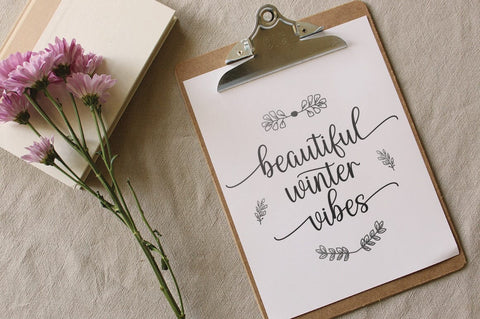 beautiful
winter
vibes